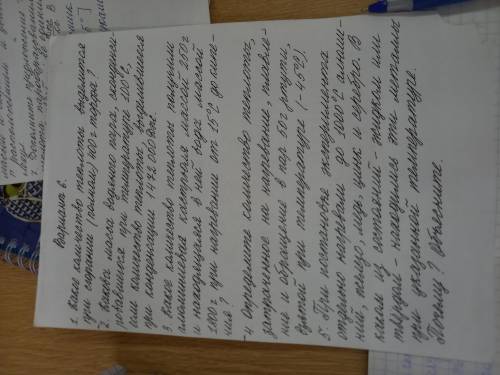 Вариант 6.
1. Какое количество теплоты выделится
при сгорании (полном) 400 г торфа?
2. Какова масса водяного пара, находи-
вшегося при температуре 100°С,
если количество теплоты, выделившееся
при конденсации 1492 000 Дж?
3. Какое количество теплоты получили
алюминиевая кастрюля массой 200 г
и находящаяся в ней вода массой
1800 г при нагревании от 15° до кипе-
ния?
4 Определите количество теплоты,
затраченное на нагревание, плавле-
ние и обращение в пар 50 г ртути,
взятой при температуре (-45°С).
5. При постановке эксперимента
отдельно нагревали до 1000°С алюми-
ний, железо, медь, цинк и серебро. В
каком из состояний - жидком или
твердом - находились эти металлы
при указанной температуре.
Почему? Объясните.